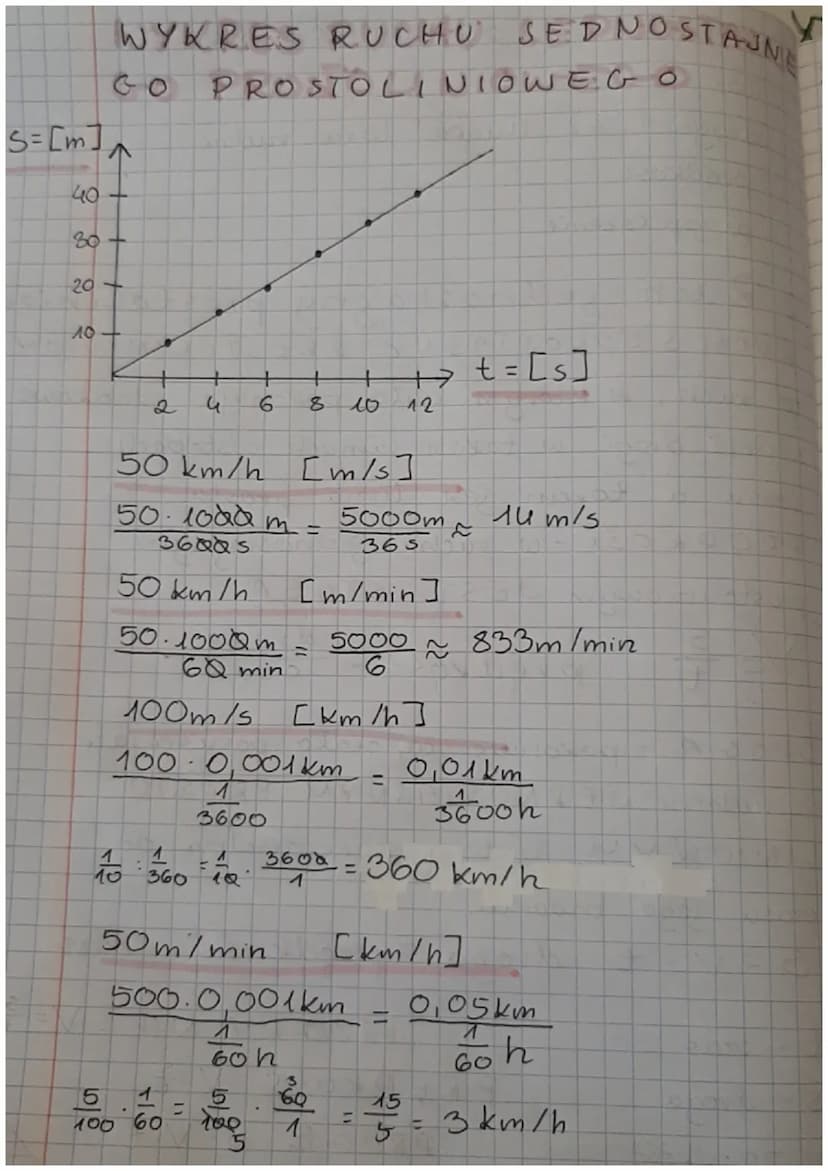 WYKRES RUCHU JEDNOSTAJNE
GO PROSTOLINIOWEGO
S=[m]
40
30
20
10
2 4 6 8 10 12
t=[s]
50 km/h [m/s]
50·1000 m / 3600 s = 5000m / 36 s ≈ 14 m/s
50 km/h [m/min]
50·1000m / 60 min = 5000 / 6 ≈ 833m/min
100m/s [km/h]
100·0,001km / 1/3600 = 0,01km / 1/3600h
1/10 : 1/360 = 1/10 · 3600/1 = 360 km/h
50m/min [km/h]
500·0,001km / 1/60h = 0,05km / 1/60 h
5/100 · 1/60 = 5/100 5 · 60/1 3 = 15/5 = 3 km/h